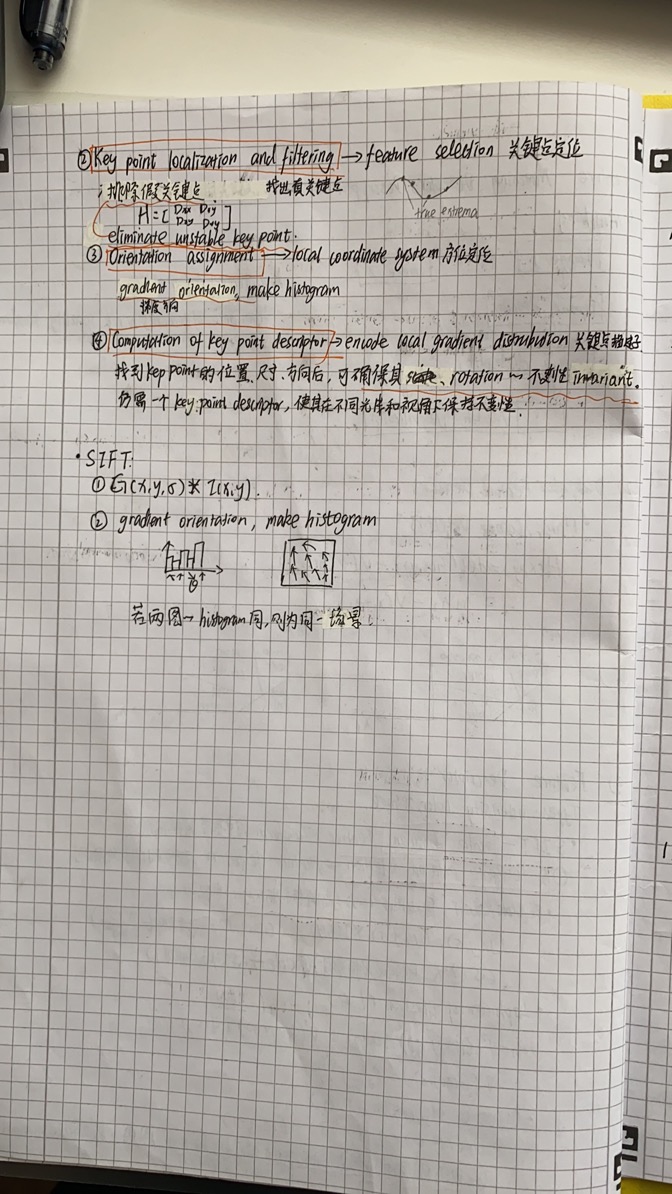 ② Key point localization and filtering → feature selection 关键点定位
排除假关键点 找出真关键点
H=[Dxx Dxy
Dxy Dyy]
true extrema
eliminate unstable key point.
③ Orientation assignment → local coordinate system 方位定位
gradient orientation, make histogram
梯度方向
④ Computation of key point descriptor → encode local gradient distribution 关键点描述子
找到 key point 的位置、尺寸、方向后，可确保其 scale、rotation ~ 不变性 Invariant.
仍需一个 key point descriptor，使其在不同光库和视角下保持不变性.
• SIFT:
① G(x,y,σ) * I(x,y).
② gradient orientation, make histogram
θ
若两图 ~ histogram 同，则为同一场景.